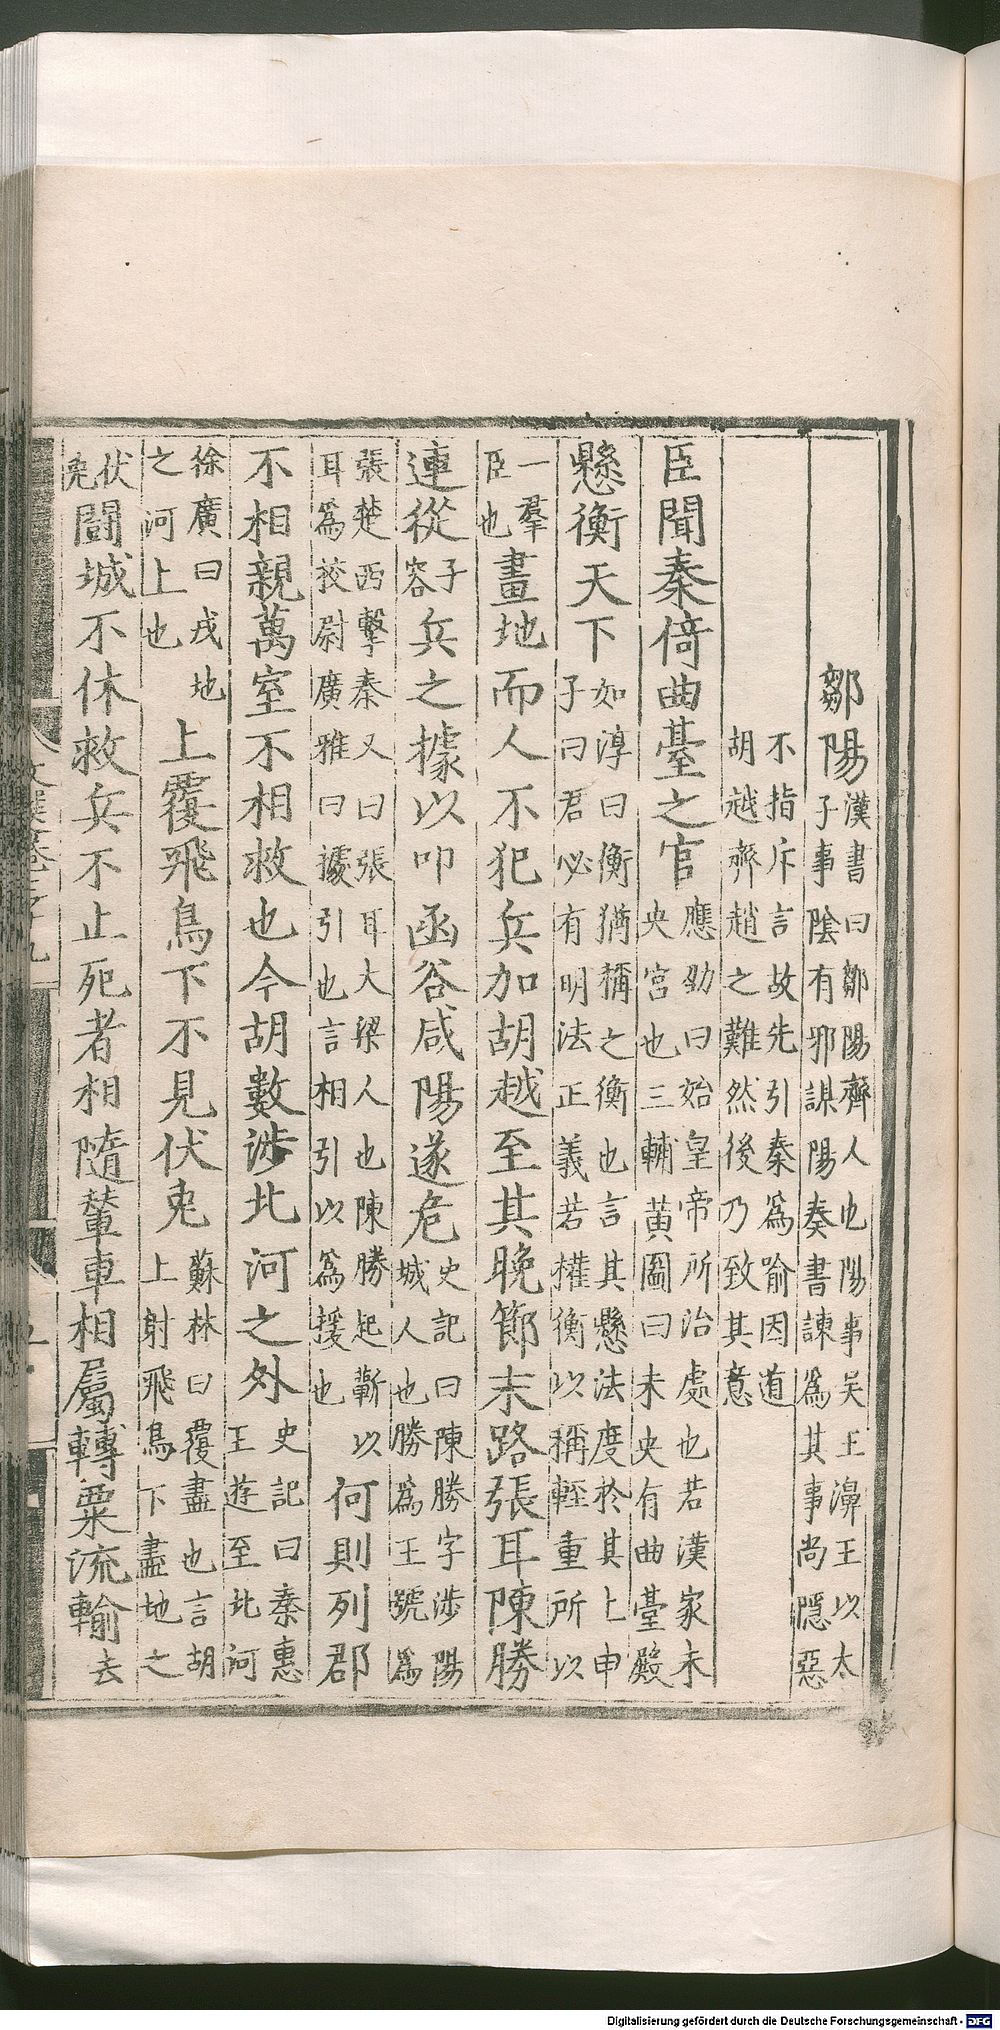 鄒陽漢書曰鄒陽齊人也陽事吳王濞王以太子事陰有邪謀陽奏書諫爲其事尚隱惡
不指斥言故先引秦爲喻因道胡越齊趙之難然後乃致其意
臣聞秦倚曲臺之宮應劭曰始皇帝所治處也若漢家未央宮也三輔黃圖曰未央有曲臺殿
懸衡天下如淳曰衡猶稱之衡也言其懸法度於其上申子曰君必有明法正義若權衡以稱輕重所以
一羣臣也畫地而人不犯兵加胡越至其晚節末路張耳陳勝
連從子容兵之據以叩函谷咸陽遂危史記曰陳勝字涉陽城人也勝爲王號爲
張楚西擊秦又曰張耳大梁人也陳勝起蘄以耳爲校尉廣雅曰據引也言相引以爲援也何則列郡
不相親萬室不相救也今胡數涉北河之外史記曰秦惠王遊至北河
徐廣曰戎地之河上也上覆飛鳥下不見伏兎蘇林曰覆盡也言胡上射飛鳥下盡地之
伏兎鬬城不休救兵不止死者相隨輦車相屬轉粟流輸去
Digitalisierung gefördert durch die Deutsche Forschungsgemeinschaft - DFG